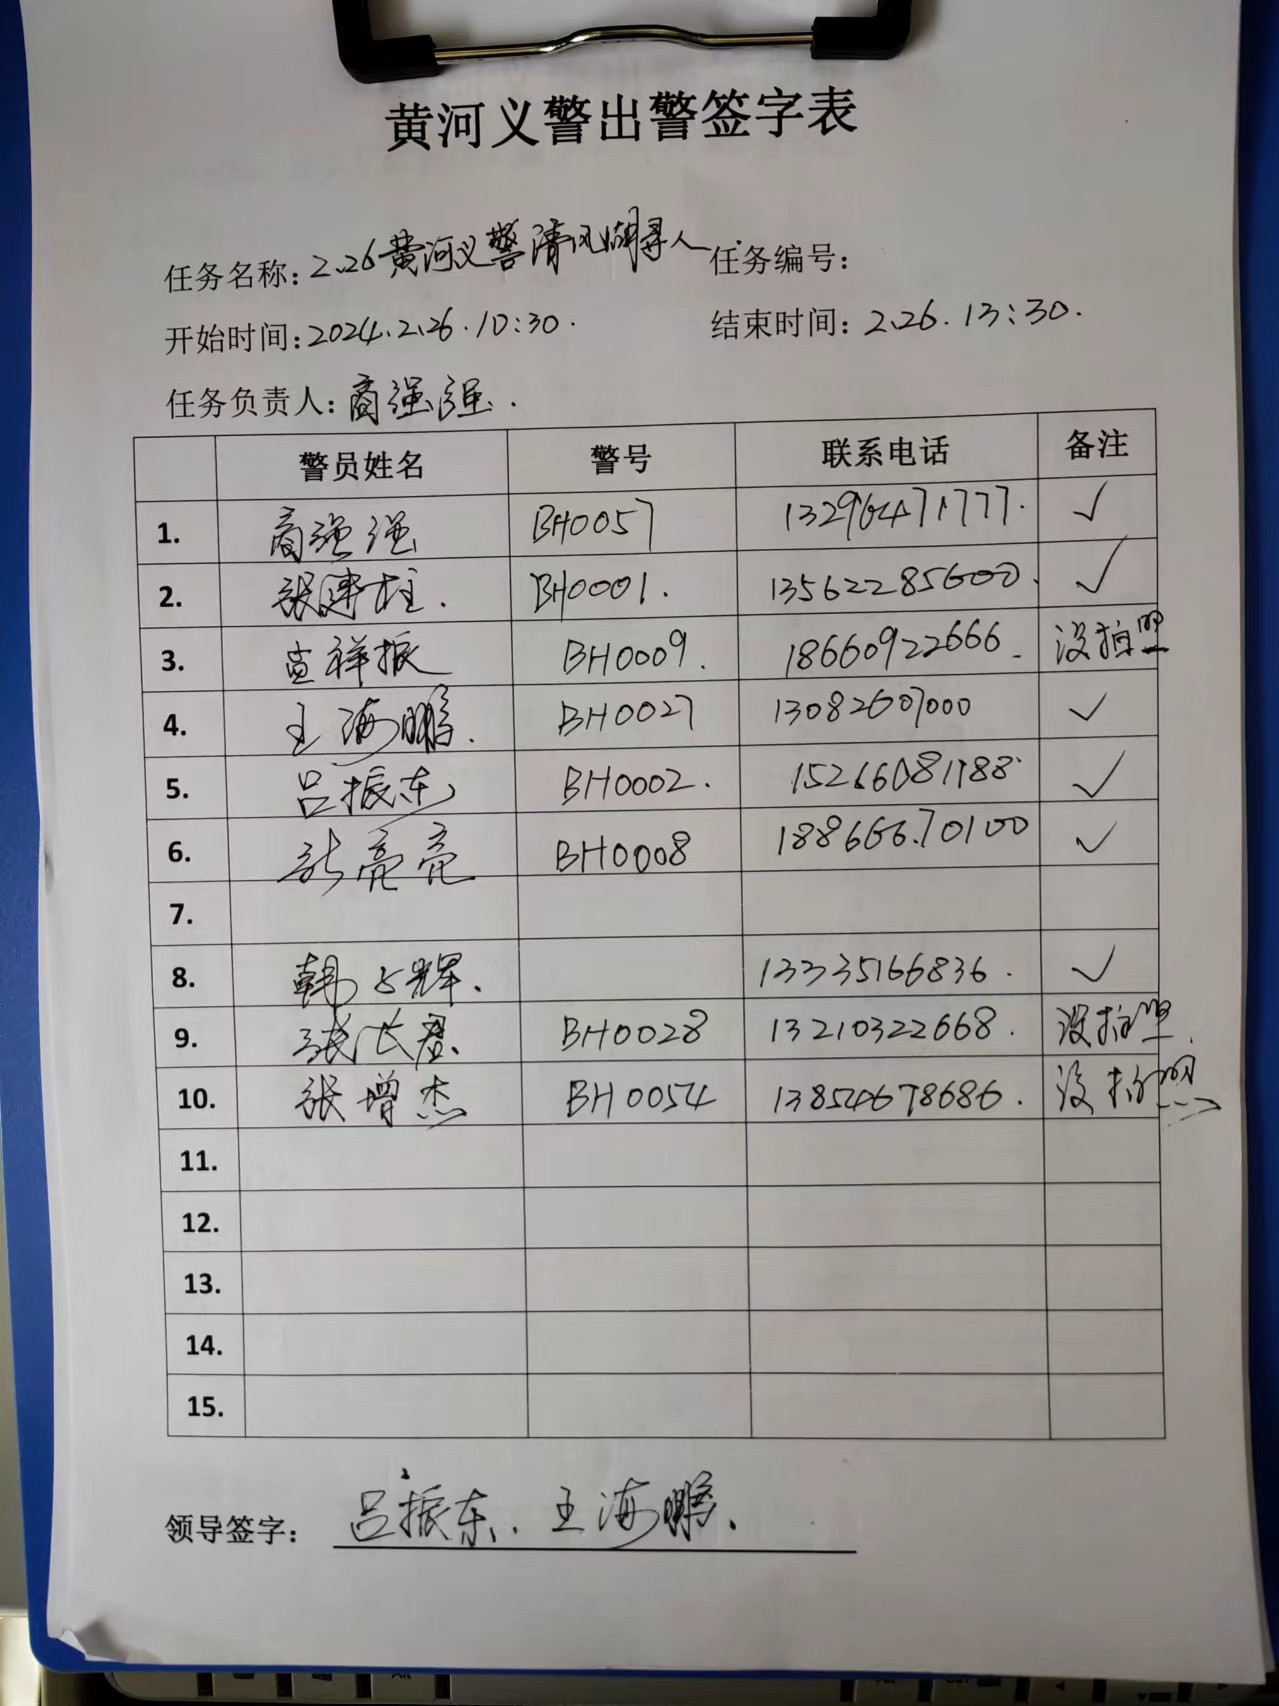 黄河义警出警签字表
任务名称：2.26黄河义警清风湖寻人 任务编号：
开始时间：2024.2.26.10:30. 结束时间：2.26.13:30.
任务负责人：商强强.
警员姓名 警号 联系电话 备注
1. 商强强 BH0057 13296471777. ✓
2. 张建柱. BH0001. 13562285600. ✓
3. 祥振 BH0009. 18660922666. 没拍照
4. 王海鹏. BH0027 13082607000 ✓
5. 吕振东 BH0002. 15266081188. ✓
6. 张亮亮 BH0008 188666.70100 ✓
7.
8. 韩占辉. 13335166836. ✓
9. 张长君. BH0028 13210322668. 没拍照.
10. 张增杰 BH0054 13854678686. 没拍照
11.
12.
13.
14.
15.
领导签字： 吕振东. 王海鹏.